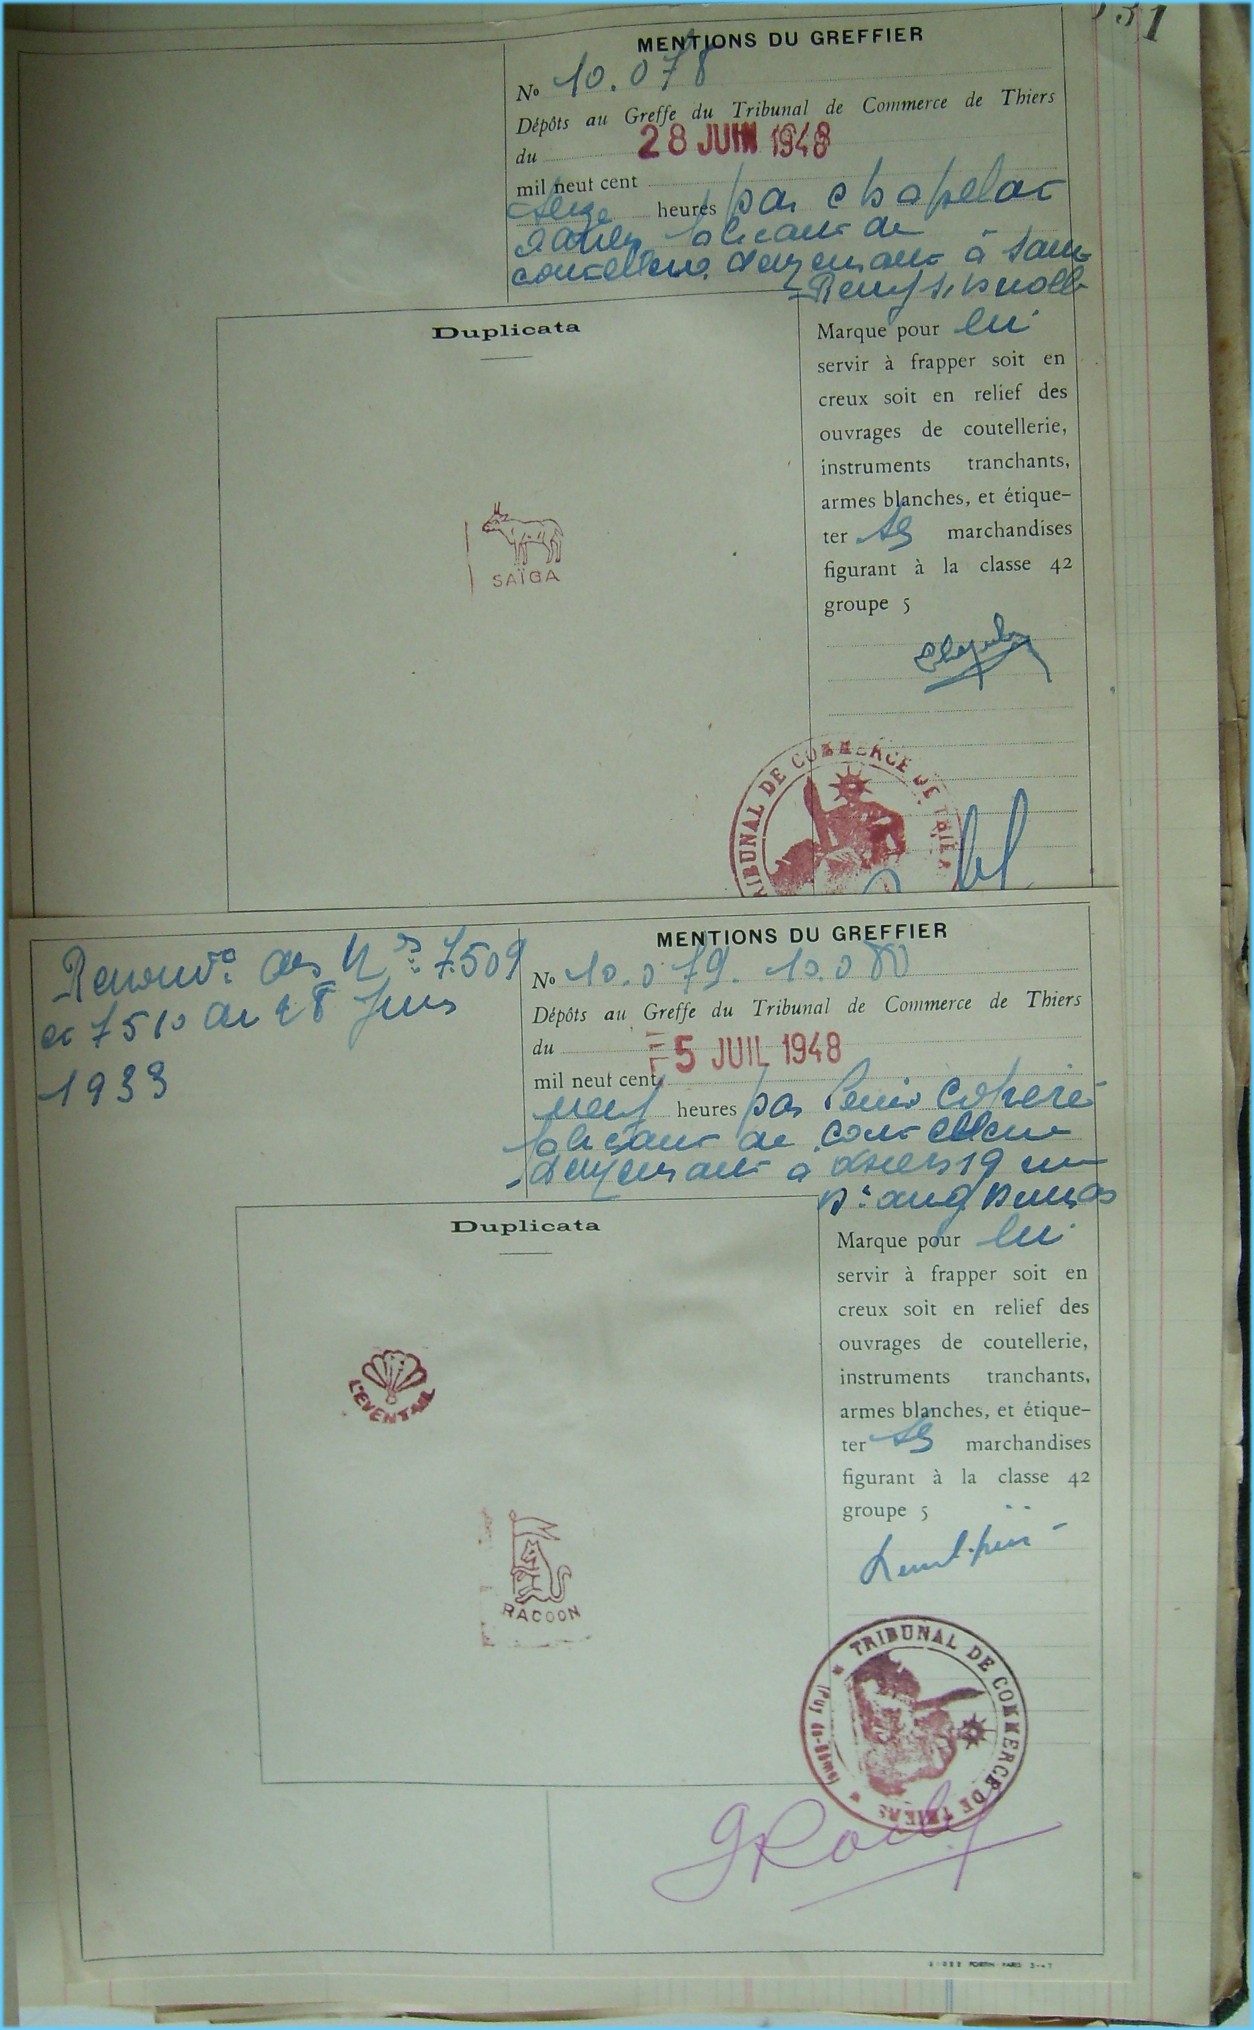 31
MENTIONS DU GREFFIER
No 10.078
Dépôts au Greffe du Tribunal de Commerce de Thiers
du 28 JUIN 1948
mil neuf cent
seize heures par chapelat
fabricant de
coutellerie demeurant à Saint
Remy s/s
Duplicata
Marque pour lui
servir à frapper soit en
creux soit en relief des
ouvrages de coutellerie,
instruments tranchants,
armes blanches, et étique-
ter ses marchandises
figurant à la classe 42
groupe 5
SAÏGA
TRIBUNAL DE COMMERCE DE THIER
Renouvt. des Nos 7.509
et 7510 du 28 Juin
1933
MENTIONS DU GREFFIER
No 10.079. 10.080
Dépôts au Greffe du Tribunal de Commerce de Thiers
du 5 JUIL 1948
mil neuf cent
neuf heures par
fabricant de coutellerie
demeurant à Thiers 19 rue
Duplicata
Marque pour lui
servir à frapper soit en
creux soit en relief des
ouvrages de coutellerie,
instruments tranchants,
armes blanches, et étique-
ter ses marchandises
figurant à la classe 42
groupe 5
L'EVENTAIL
RACOON
TRIBUNAL DE COMMERCE DE THIERS
(Puy-de-Dôme)